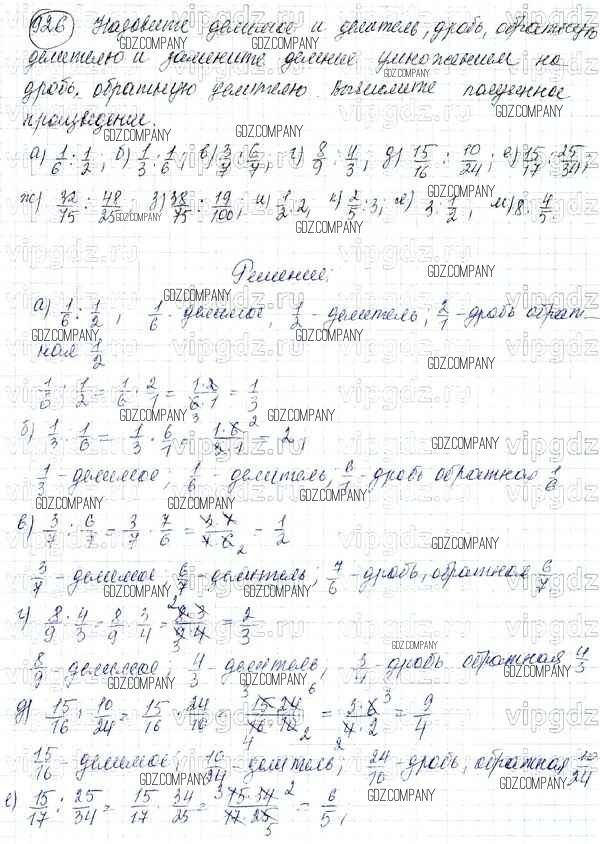 926 Назовите делимое и делитель, дробь, обратную
делителю и замените деление умножением на
дробь, обратную делителю. Вычислите полученное
произведение.
а) 1/6 : 1/2, б) 1/3 : 1/6, в) 3/7 : 6/7, г) 8/9 : 4/3, д) 15/16 : 10/24; е) 15/17 : 25/34,
ж) 32/75 : 48/25 з) 38/75 : 19/100, и) 1/2 : 2, к) 2/5 : 3; л) 3 : 1/2, м) 8 : 4/5.
Решение:
а) 1/6 : 1/2, 1/6 - делимое, 1/2 - делитель; 2/1 - дробь обрат-
ная 1/2
1/6 : 1/2 = 1/6 · 2/1 = 1·2/6·1 = 1/3
б) 1/3 : 1/6 = 1/3 · 6/1 = 1·6/3·1 = 2,
1/3 - делимое; 1/6 - делитель, 6/1 - дробь обратная 1/6
в) 3/7 : 6/7 = 3/7 · 7/6 = 3·7/7·6 = 1/2
3/7 - делимое, 6/7 - делитель; 7/6 - дробь, обратная 6/7
г) 8/9 : 4/3 = 8/9 · 3/4 = 8·3/9·4 = 2/3
8/9 - делимое; 4/3 - делитель, 3/4 - дробь обратная 4/3
д) 15/16 : 10/24 = 15/16 · 24/10 = 15·24/16·10 = 3·6/4·2 = 9/4
15/16 - делимое; 10/24 - делитель; 24/10 - дробь, обратная 10/24
е) 15/17 : 25/34 = 15/17 · 34/25 = 15·34/17·25 = 6/5,